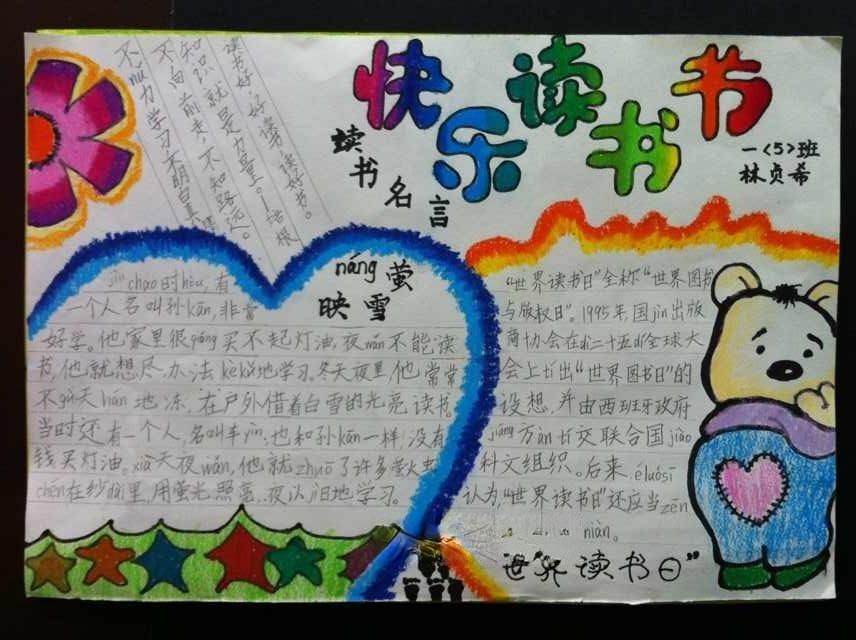 快乐读书
一<5>班
林贞希
读书名言
读书好,好读书,读好书。
知识就是力量。—培根
不向前走,不知路远。
不nǔ力学习,不明白真
náng萤
映雪
jìn chao时hòu,有
一个人名叫孙kāng,非常
好学。他家里很qióng买不起灯油,夜wǎn不能读
书,他就想尽办法kèkǔ地学习。冬天夜里,他常常
天hán地冻,在户外借着白雪的光亮读书。
当时还有一个人,名叫车yìn,也和孙kāng一样没有
钱买灯油。xià天夜wǎn,他就zhuō了许多萤火虫
在纱dài里,用萤光照亮,夜以jì日地学习。
“世界读书日”全称“世界图书
与版权日”。1995年国jìn出版
商协会在dì二十五dì全球大
会上出“世界图书日”的
设想,并由西班牙政府
jiāng方àn交联合国jiào
科文组织。后来,éluósī
认为,“世界读书日”还应当zēn
niàn。
“世界读书日”